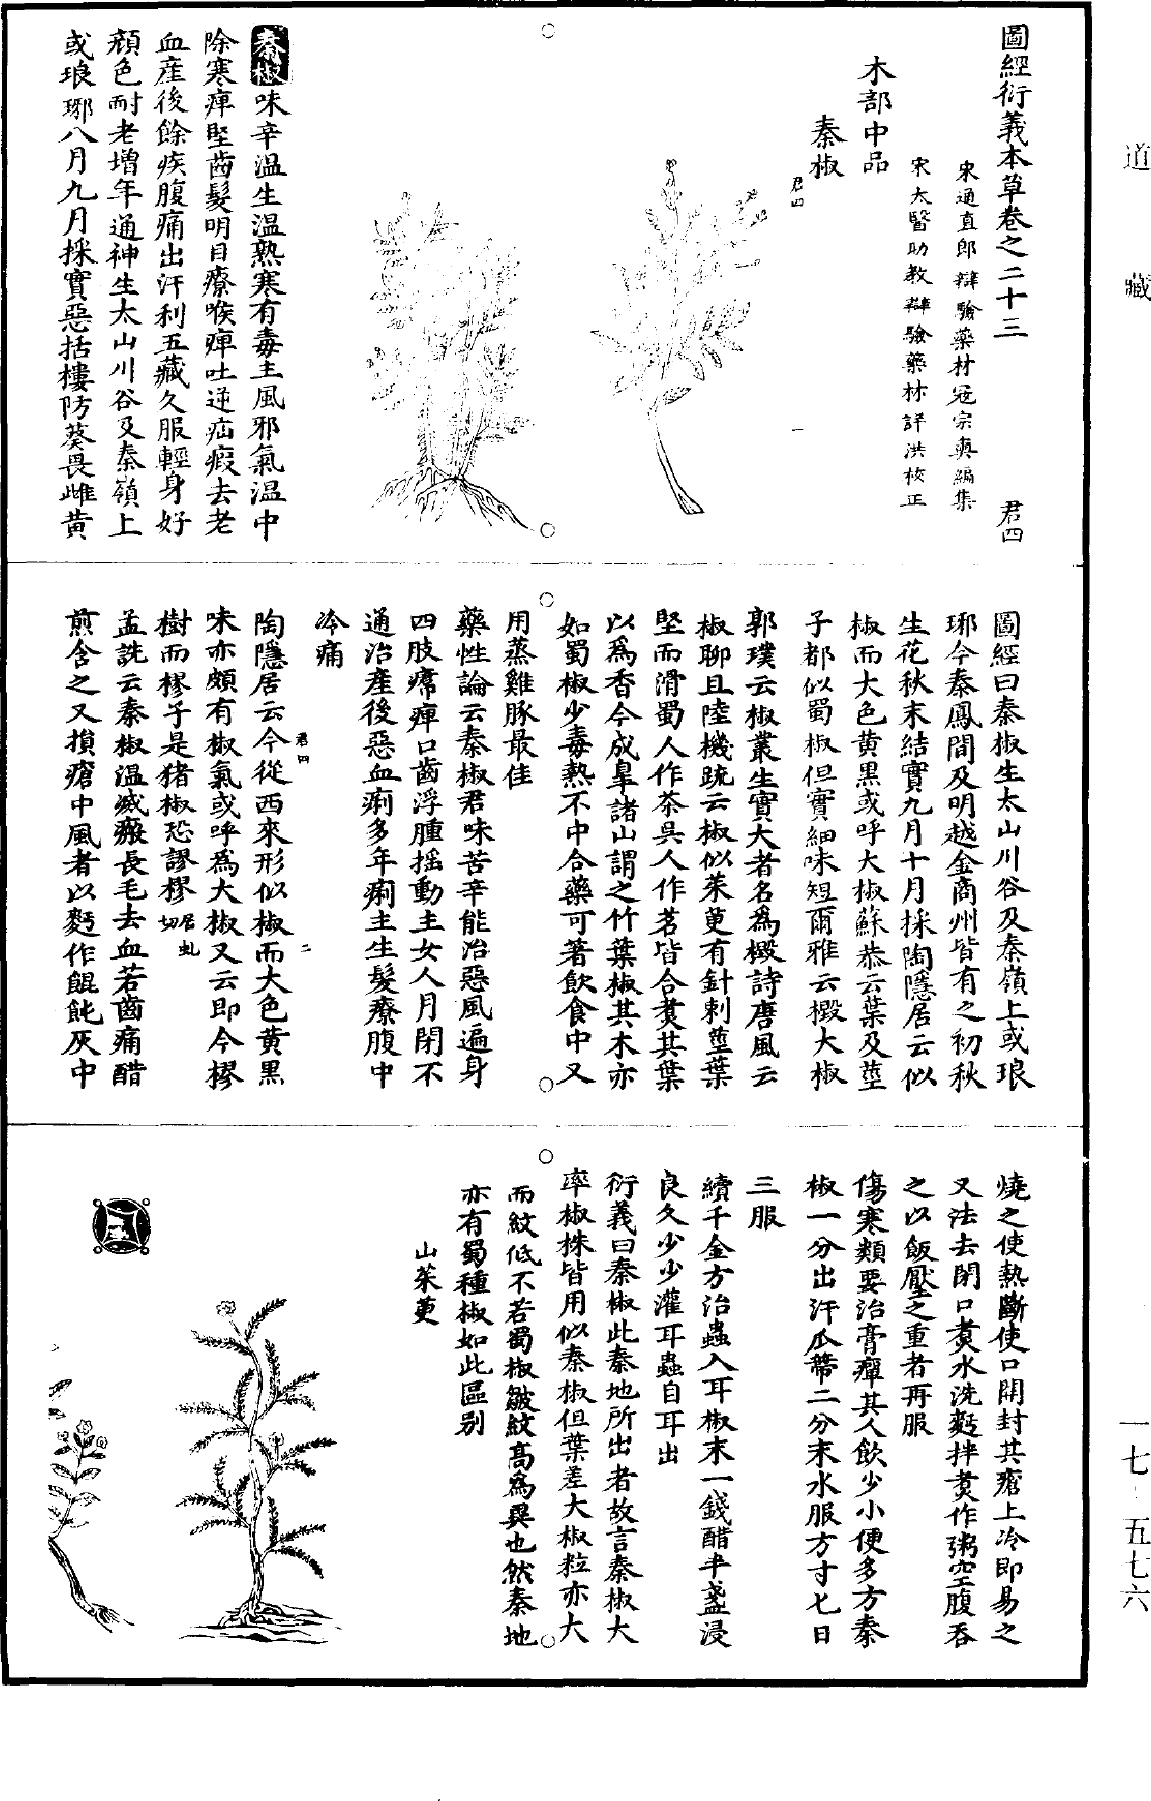 道藏
圖經衍義本草卷之二十三　君四
宋通直郎辯驗藥材寇宗奭編集
宋太醫助教辯驗藥材許洪校正
木部中品
秦椒
君四
一
秦椒味辛温生温熟寒有毒主風邪氣温中
除寒痺堅齒髮明目療喉痺吐逆疝瘕去老
血産後餘疾腹痛出汗利五藏久服輕身好
顏色耐老增年通神生太山川谷及秦嶺上
或琅琊八月九月採實惡括樓防葵畏雌黃
圖經曰秦椒生太山川谷及秦嶺上或琅
琊今秦鳳間及明越金商州皆有之初秋
生花秋末結實九月十月採陶隱居云似
椒而大色黃黑或呼大椒蘇恭云葉及莖
子都似蜀椒但實細味短爾雅云檓大椒
郭璞云椒叢生實大者名為檓詩唐風云
椒聊且陸機疏云椒似茱萸有針刺莖葉
堅而滑蜀人作茶吳人作茗皆合煑其葉
以為香今成臯諸山謂之竹葉椒其木亦
如蜀椒少毒熱不中合藥可著飲食中又
用蒸雞豚最佳
藥性論云秦椒君味苦辛能治惡風遍身
四肢𤸷痺口齒浮腫摇動主女人月閉不
通治産後惡血痢多年痢主生髮療腹中
冷痛
君四
二
陶隱居云今從西來形似椒而大色黃黑
味亦頗有椒氣或呼為大椒又云即今樛
樹而樛子是猪椒恐謬樛居虬切
孟詵云秦椒温滅瘢長毛去血若齒痛醋
煎含之又損瘡中風者以麪作餛飩灰中
燒之使熱斷使口開封其瘡上冷即易之
又法去閉口煑水洗麪拌煑作粥空腹吞
之以飯壓之重者再服
傷寒類要治膏癉其人飲少小便多方秦
椒一分出汗瓜蔕二分末水服方寸匕日
三服
續千金方治蟲入耳椒末一錢醋半盞浸
良久少少灌耳蟲自耳出
衍義曰秦椒此秦地所出者故言秦椒大
率椒株皆用似秦椒但葉差大椒粒亦大
而紋低不若蜀椒皺紋高為異也然秦地
亦有蜀種椒如此區別
山茱萸
一七
五七六